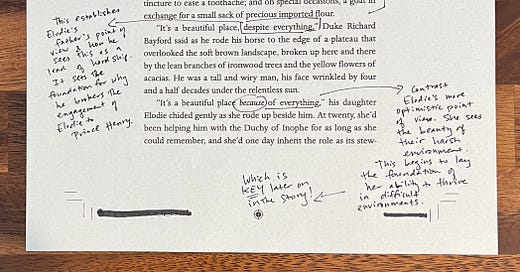 tincture to ease a toothache; and on special occasions, a goat in
exchange for a small sack of precious imported flour.
"It's a beautiful place, despite everything," Duke Richard
Bayford said as he rode his horse to the edge of a plateau that
overlooked the soft brown landscape, broken up here and there
by the lean branches of ironwood trees and the yellow flowers of
acacias. He was a tall and wiry man, his face wrinkled by four
and a half decades under the relentless sun.
"It's a beautiful place because of everything," his daughter
Elodie chided gently as she rode up beside him. At twenty, she'd
been helping him with the Duchy of Inophe for as long as she
could remember, and she'd one day inherit the role as its stew-
This establishes
Elodie's
father's point of
view & how he
sees this as a
land of hardship.
It sets the
foundation for why
he brokers the
engagement of
Elodie to
Prince Henry.
Contrast
Elodie's more
optimistic point
of view. She sees
the beauty of
their harsh
environment.
This begins to lay
the foundation of
her ability to thrive
in difficult
environments.
Which is
KEY later on
in the story!